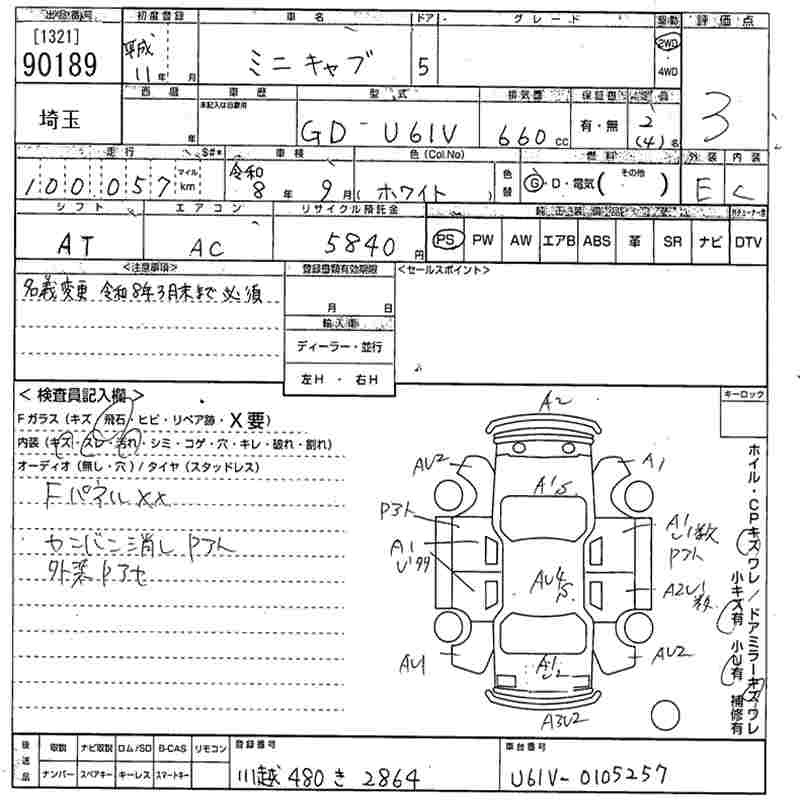 出品番号 初度登録 車名 ドア グレード 駆動 評価点
[1321]
90189
平成 11年 月
ミニキャブ
5
2WD
4WD
3
埼玉
西暦 車歴 型式 排気量 保証書 定員
未記入は自家用
年
GD-U61V
660cc
有・無
2
(4)名
走行 S#* 車検 色(Col.No) 燃料 外装 内装
100057 マイル km
令和 8年 9月
(ホワイト)
色替
G・D・電気( その他 )
E C
シフト エアコン リサイクル預託金
AT AC 5840円
PS PW AW エアB ABS 革 SR ナビ DTV
<注意事項> 登録書類有効期限 <セールスポイント>
名義変更 令和8年3月末まで必須
月 日
輸入車
ディーラー・並行
左H・右H
<検査員記入欄> キーロック
Fガラス(キズ・飛石・ヒビ・リペア跡・X要)
内装(キズ・スレ・汚れ・シミ・コゲ・穴・キレ・破れ・割れ)
オーディオ(無し・穴)/タイヤ(スタッドレス)
Fパネルxx
カンバン消しPアト
外装Pアセ
A2
AU2 A1
A1S
Pアト
A1
U1数
Pアト
A1
AU4
S
A2U1
数
AU1 AU2
A1
U2
A3U2
ホイル・CPキズワレ/ドアミラーキズワレ
小キズ有 小U有 補修有
後送品 取説 ナビ取説 ロム/SD B-CAS リモコン
ナンバー スペアキー キーレス スマートキー
登録番号
川越 480 き 2864
車台番号
U61V-0105257